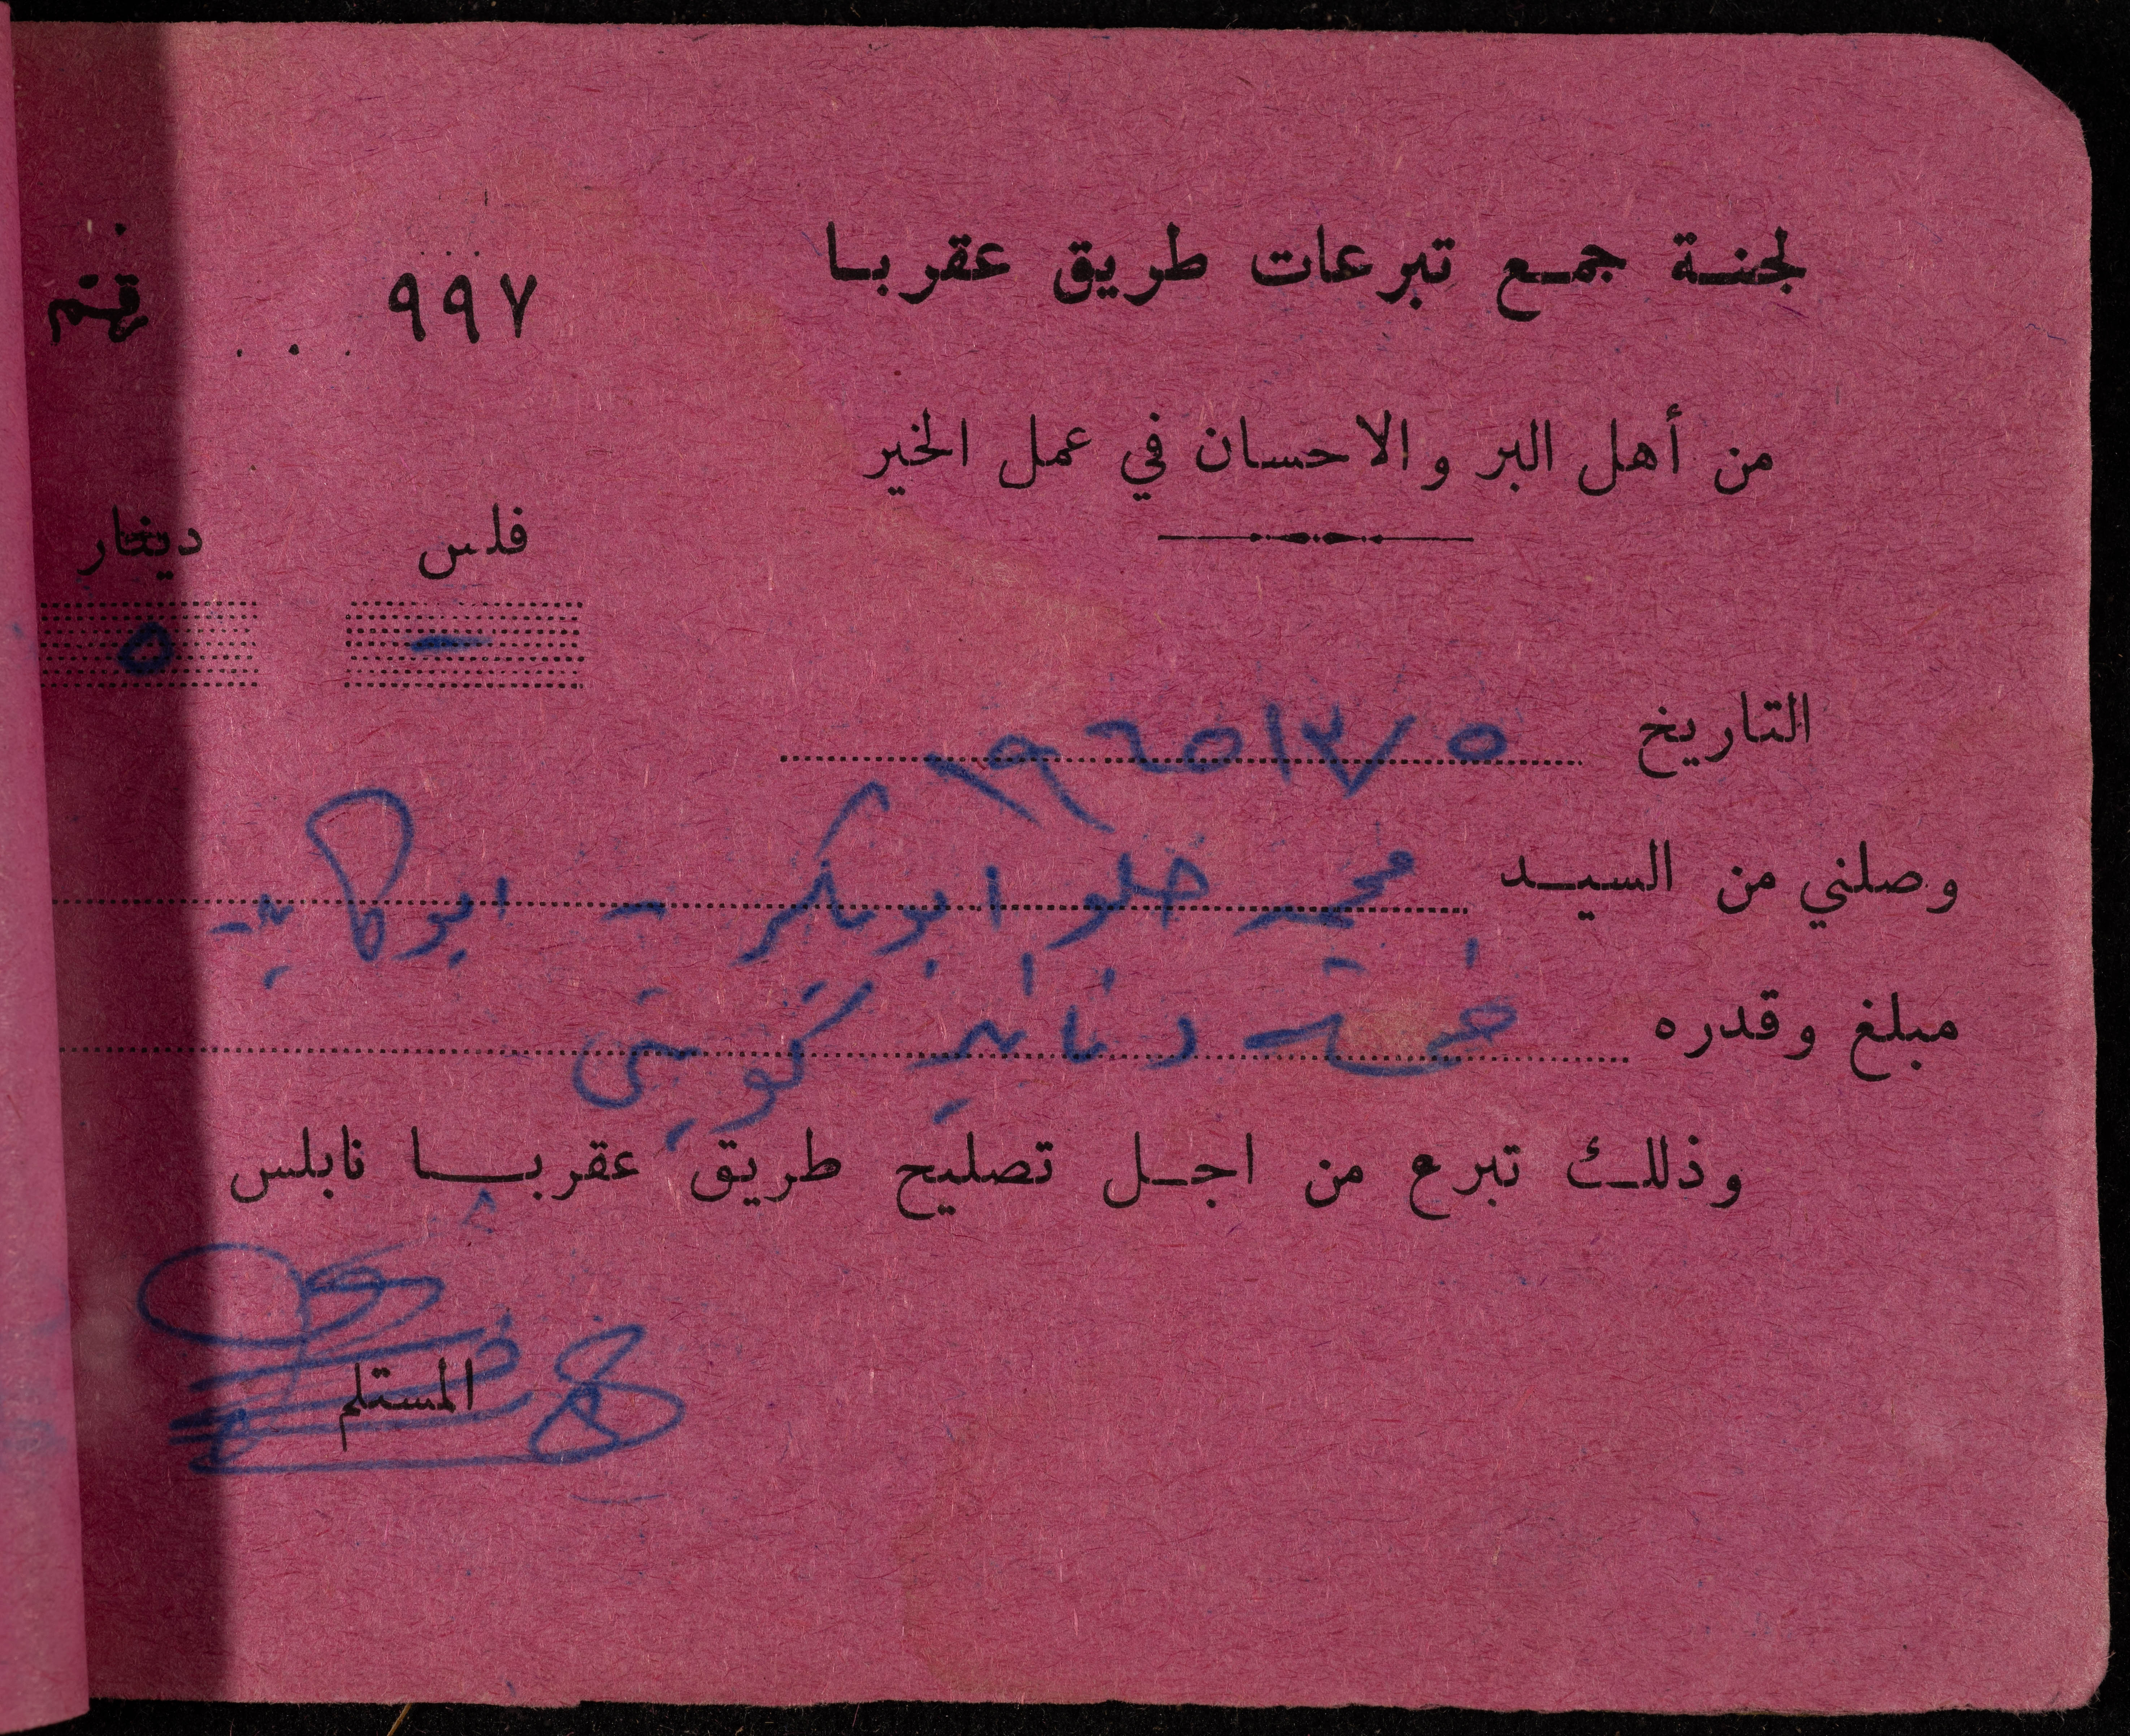 لجنة جمع تبرعات طريق عقربا
٩٩٧
من أهل البر والاحسان في عمل الخير
فلس دينار
- ٥
التاريخ ٥ / ٣ / ١٩٦٥
وصلني من السيد محمد حلو ابو بكر - ابو كايد -
مبلغ وقدره خمسة دنانير كويتي
وذلك تبرع من اجل تصليح طريق عقربا نابلس
المستلم